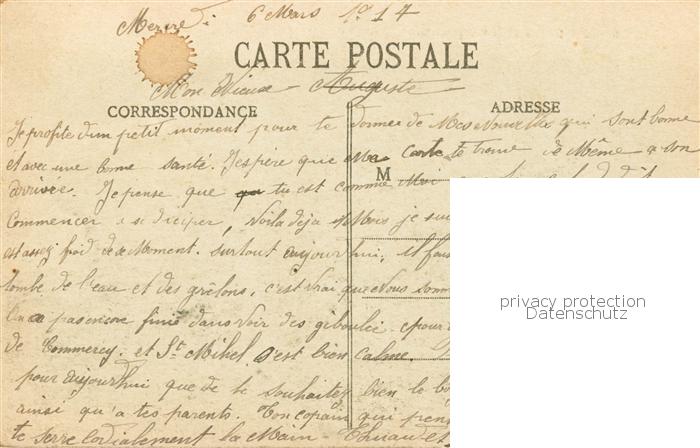 Mercredi 6 Mars 1917
CARTE POSTALE
Mon Vieux Auguste
CORRESPONDANCE
ADRESSE
Je profite d'un petit moment pour te donner de Mes Nouvelles qui sont bonne
et avec une bonne santé. J'espère que Ma Carte te trouve de Même a son
arrivée. Je pense que tu est comme Moi
M
Commencer a se Voila déja Mois je suis
est assez froid de ce Moment. surtout aujourd'hui, il
tombe de l'eau et des grêlons, c'est vrai que Nous
pas encore finie d'avoir des giboulée. pour
de Commercy. et St Mihel c'est bien calme.
pour aujourd'hui que de te souhaitez bien le
ainsi qu'a tes parents. Ton copain qui
te serre Cordialement la Main
privacy protection
Datenschutz